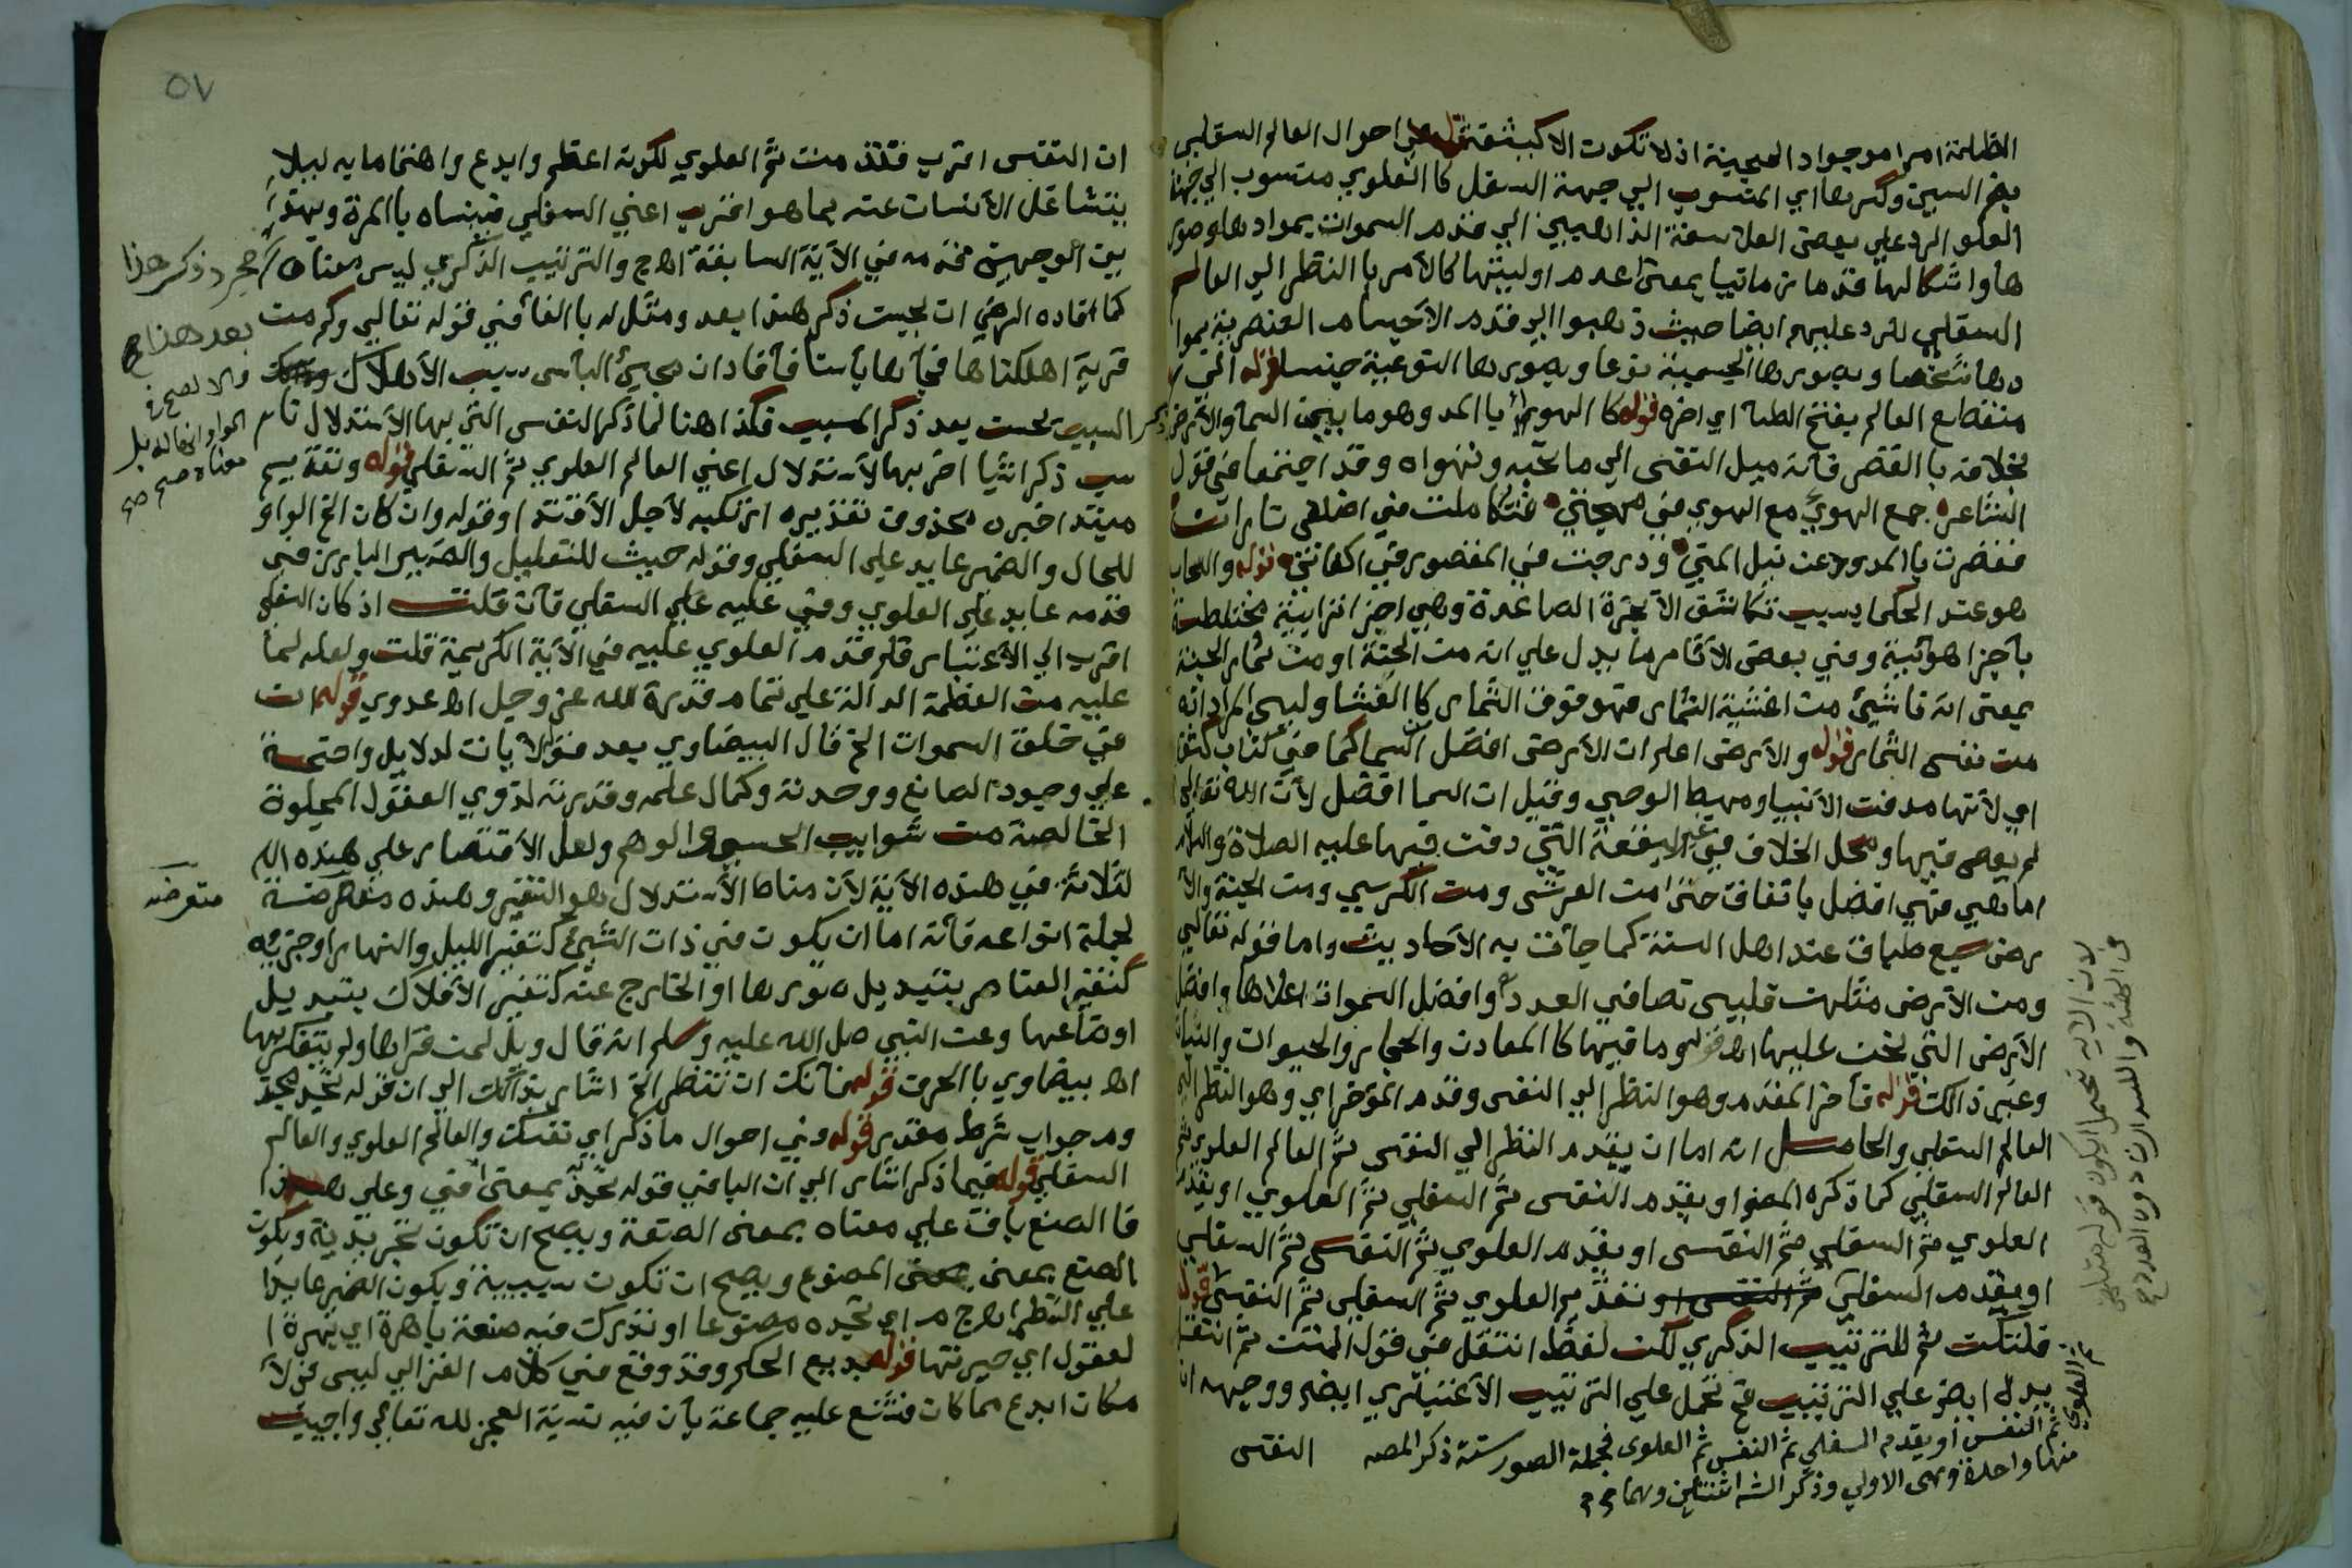 الظلمة امرا موجودا
قوله احوال العالم السفلي
بضم السين وكسرها اي المنسوب الي جهة السفل كما العلوي منسوب الي جهة
العلو الرد علي بعض الفلاسفة الذاهبين الي قدم السموات بموادها وصور
ها واشكالها قدما زمانيا بمعني عدم اوليتها كالامر با النظر الي العالم
السفلي للرد عليهم ايضا حيث ذهبوا الي قدم الاجسام العنصرية بموا
دها شخصا وبصورها الجسمية نوعا وبصورها النوعية جنسا قوله الي
منقطع العالم بفتح الطا اي اخره قوله كا الهوا با المد وهو ما بين السما والارض
بخلافه با القصر فانه ميل النفس الي ما تحبه وتهواه وقد اجتمعا في قول
الشاعر جمع الهوي مع الهوي في مهجتي فتكاملت في اضلعي ناران
فقصرت با الممدود عن نيل المني ودرجت في المقصور في اكفاني قوله والسحاب
هو عند الحكما بسبب تكاثف الابخرة الصاعدة وهي اجزا ترابية مختلطة
باجزا هوائية وفي بعض الاثار ما يدل علي انه من الجنة او من ثمار الجنة
بمعني انه ناشئ من اغشية الثمار فهو فوق الثمار كا الغشا وليس المراد انه
من نفس الثمار قوله والارض اعلم ان الارض افضل من السما كما في
اي لانها مدفن الانبيا ومهبط الوحي وقيل ان السما افضل لان الله تعالي
لم يعص فيها ومحل الخلاف في غير البقعة التي دفن فيها عليه الصلاة والسلام
اما هي فهي افضل باتفاق حتي من العرش ومن الكرسي ومن الجنة والا
رض سبع طباق عند اهل السنة كما جأت به الاحاديث واما قوله تعالي
ومن الارض مثلهن فليس نصا في العدد وافضل السموات اعلاها وافضل
الارض التي نحن عليها اه قوله وما فيها كا المعادن والحجار والحيوان والنبات
وغير ذالك قوله فأخر المقدم وهو النظر الي النفس وقدم المؤخر اي وهو النظر الي
العالم السفلي والحاصل انه اما ان يقدم النظر الي النفس ثم العالم العلوي ثم
العالم السفلي كما ذكره المص او يقدم النفس ثم السفلي ثم العلوي او يقدم
العلوي ثم السفلي ثم النفس او يقدم العلوي ثم النفس ثم السفلي
او يقدم السفلي ثم النفس او يقدم العلوي ثم السفلي ثم النفس قوله
ثم للترتيب الذكري لكن لفظ انتقل في قول المتن ثم انتقل
يدل ايض علي الترتيب فح تحمل علي الترتيب الاعتباري ايض ووجهه ان
ثم العلوي
ثم النفس او يقدم السفلي ثم النفس ثم العلوي فجملة الصور ستة ذكر المصه
منها واحدة وهي الاولي وذكر الش اثنتين وهما
النفس
٥٧
ان النفس اقرب فقدمت ثم العلوي لكونه اعظم وابدع واهتماما به ليلا
يتشاغل الانسان عنه بما هو اقرب اعني السفلي فينساه با المرة وبهذا
بين الوجهين قدمه في الاية السابقة اه ج والترتيب الذكري ليس معناه مجرد ذكر هذا
بعد هذا
كما افاده الرضي ان يحسن ذكر هذا بعد ومثل له با الفأ في قوله تعالي وكم من
قرية اهلكناها فجأها بأسنا فأفاد ان مجيئ البأس سبب الاهلاك
السبب يحسن بعد ذكر المسبب فكذا هنا لما ذكر النفس التي بها الاستدلال
ذكر اشيا اخر بها الاستدلال اعني العالم العلوي ثم السفلي قوله وتقديم
مبتدا خبره محذوف تقديره ارتكبه لاجل الاقتدا وقوله وان كان الخ الواو
للحال والضمير عايد علي السفلي وقوله حيث للتعليل والضمير البارز في
قدمه عايد علي العلوي وفي عليه علي السفلي فان قلت اذ كان السفلي
اقرب الي الاعتبار فلم قدم العلوي عليه في الاية الكريمة قلت ولعله لما
عليه من العظمة الدالة علي تمام قدرة الله عز وجل اه عدوي قوله ان
في خلق السموات الخ قال البيضاوي بعد قوله لايات لدلايل واضحة
علي وجود الصانع ووحدته وكمال علمه وقدرته لذوي العقول المجلوة
الخالصة من شوايب الحس والوهم ولعل الاقتصار علي هذه ال
ثلاثة في هذه الاية لان مناط الاستدلال هو التغير وهذه متعرضة
متعرضه
لجملة انواعه فانه اما ان يكون في ذات الشيئ كتغير الليل والنهار او جزيه
كتغير العناصر بتبديل صورها او الخارج عنه كتغير الافلاك بتبديل
اوضاعها وعن النبي صلي الله عليه وسلم انه قال ويل لمن قرأها ولم يتفكر بها
اه بيضاوي با الحرف قوله فأنك ان تنظر الخ اشار بذالك الي ان قوله تجد مجز
وم جواب شرط مقدر قوله وفي احوال ما ذكر اي نفسك والعالم العلوي والعالم
السفلي قوله فيما ذكر اشار الي ان البا في قوله تجد به بمعني في وعلي هذا
فا الصنع باق علي معناه بمعني الصنعة ويصح ان تكون تجريدية ويكون
الصنع بمعني المصنوع ويصح ان تكون سببية ويكون الضمير عايدا
علي النظر اه ج م اي تجده مصنوعا او تدرك فيه صنعة باهرة اي بهرة ا
لعقول اي حيرتها قوله بديع الحكم وقد وقع في كلام الغزالي ليس في الا
مكان ابدع مما كان فشنع عليه جماعة بأن فيه نسبة العجز لله تعالي واجيب